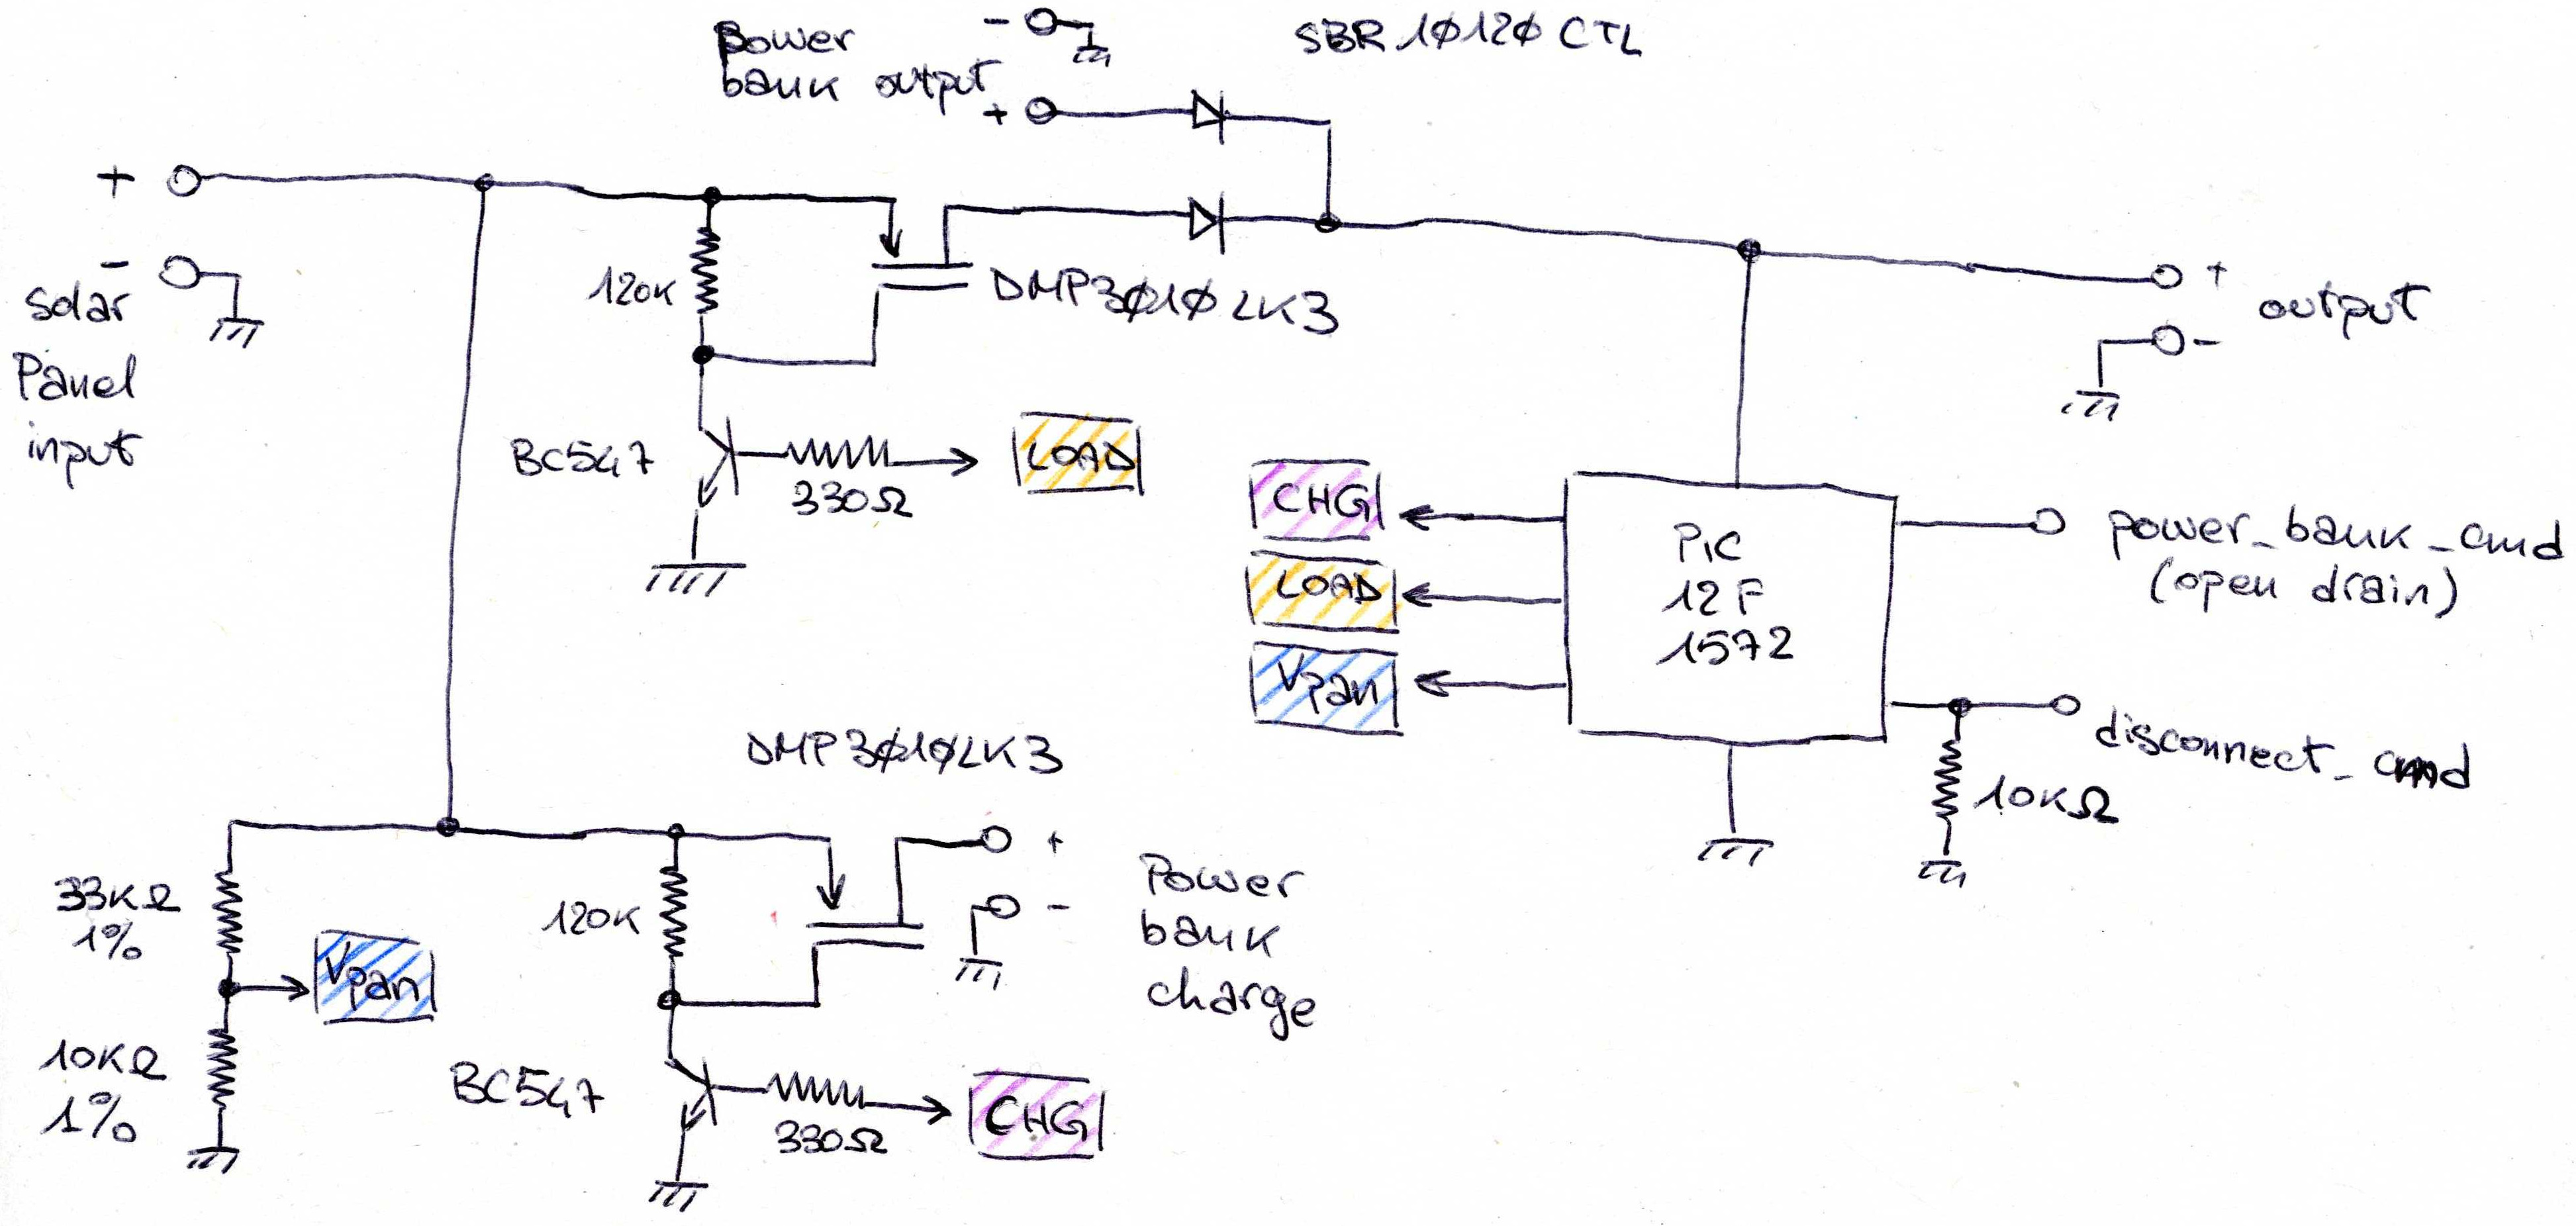 Power
bank output
-
+
SBR 1Ø12Ø CTL
+
-
solar
Panel
input
120K
DMP3Ø1Ø LK3
BC547
330Ω
LOAD
+
-
output
CHG
LOAD
Vpan
PIC
12F
1572
power_bank_cmd
(open drain)
disconnect_cmd
10KΩ
DMP3Ø1ØLK3
33KΩ
1%
Vpan
10KΩ
1%
120K
+
-
Power
bank
charge
BC547
330Ω
CHG